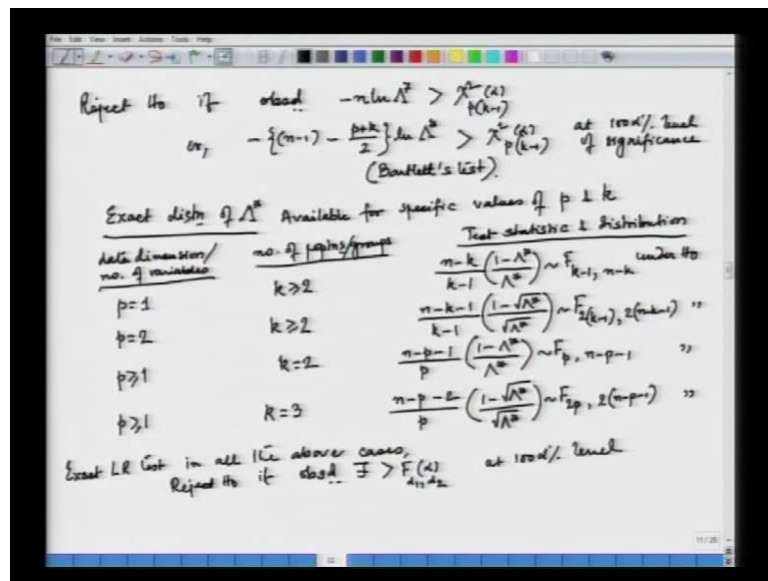 File Edit View Insert Actions Tools Help
Reject Ho if obsd -n ln Λ* > χ²_{p(k-1)}(α)
or, -{(n-1) - (p+k)/2} ln Λ* > χ²_{p(k-1)}(α) at 100α% level of significance
(Bartlett's test).
Exact distn of Λ* Available for specific values of p & k
data dimension/ no. of variables no. of poplns/groups Test statistic & distribution
p=1 k≥2 (n-k)/(k-1) ((1-Λ*)/Λ*) ~ F_{k-1, n-k} under Ho
p=2 k≥2 (n-k-1)/(k-1) ((1-√Λ*)/√Λ*) ~ F_{2(k-1), 2(n-k-1)} "
p≥1 k=2 (n-p-1)/p ((1-Λ*)/Λ*) ~ F_{p, n-p-1} "
p≥1 k=3 (n-p-2)/p ((1-√Λ*)/√Λ*) ~ F_{2p, 2(n-p-1)} "
Exact LR test in all the above cases,
Reject Ho if obsd F > F_{d1, d2}(α) at 100α% level
11/25